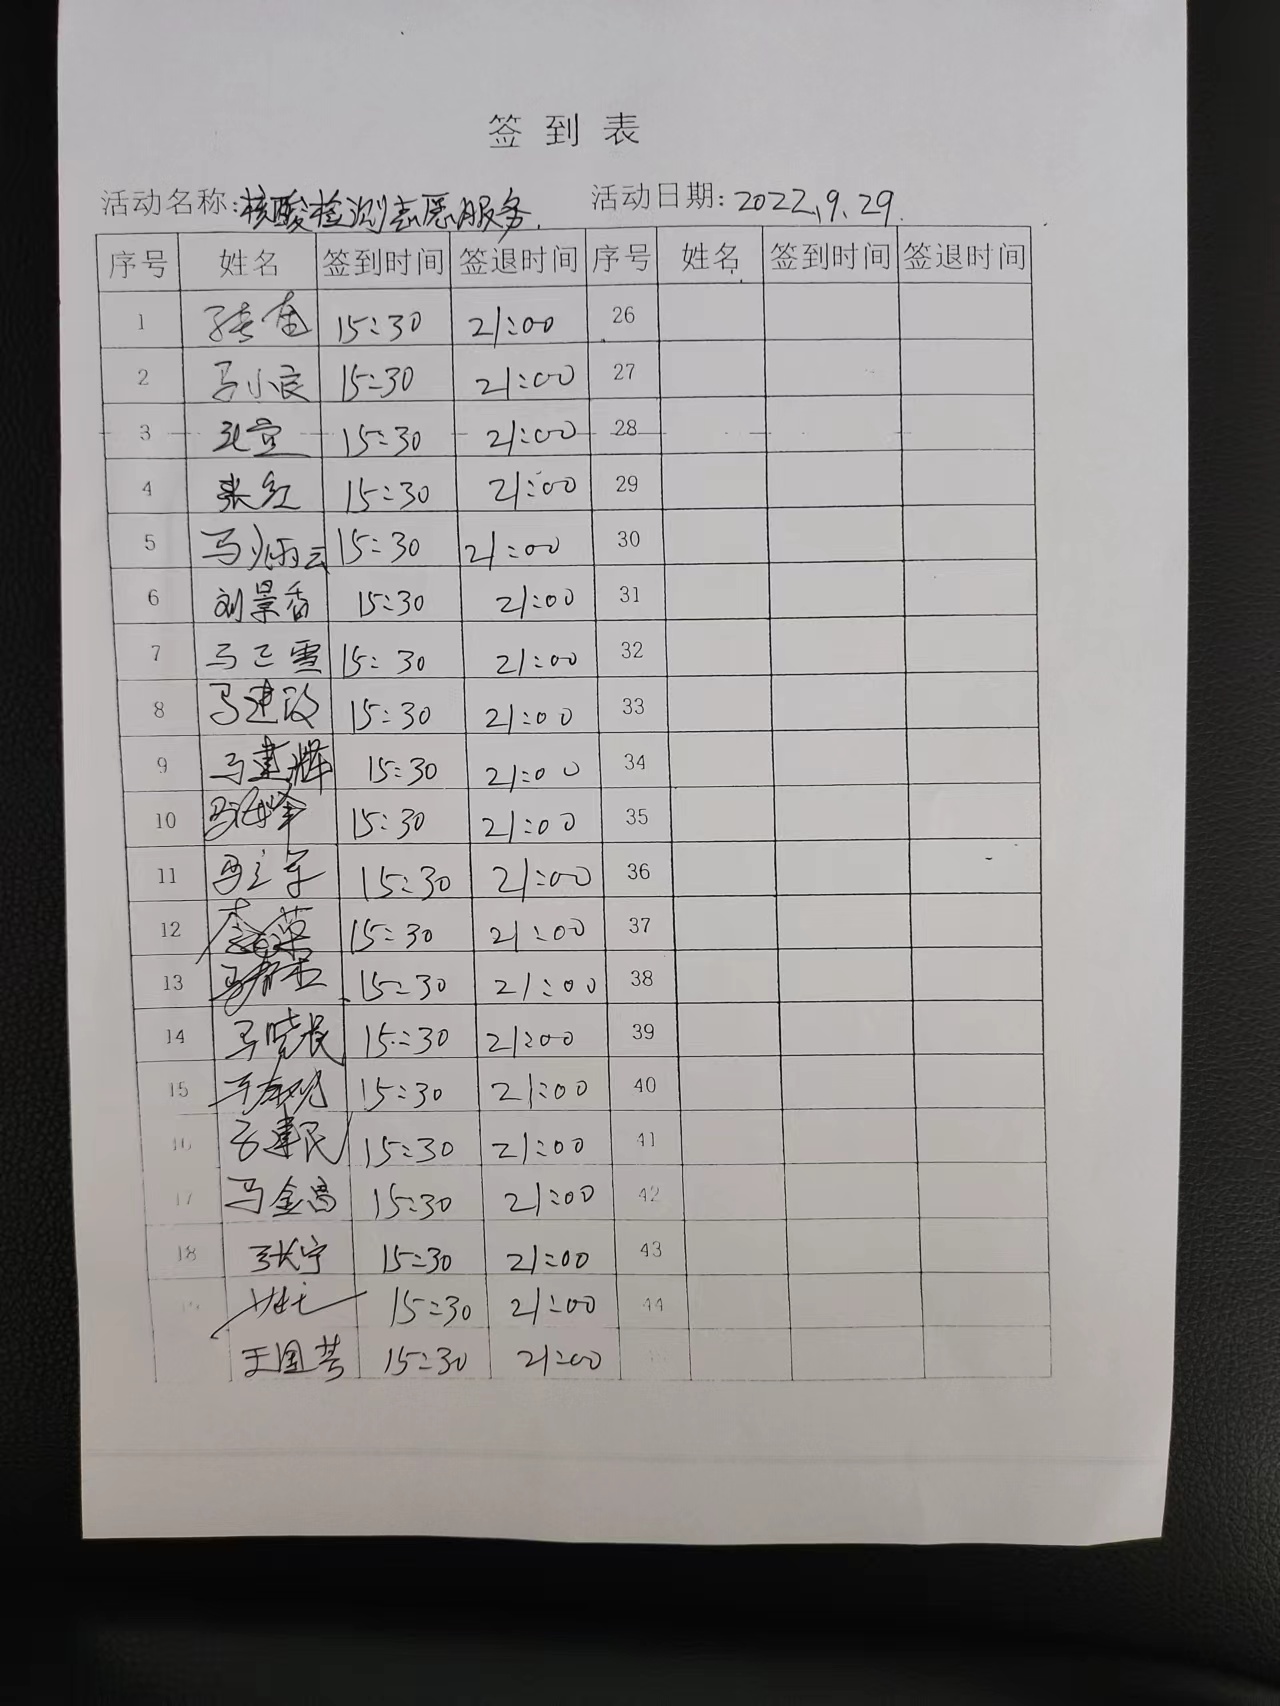 签到表
活动名称:核酸检测志愿服务. 活动日期:2022.9.29.
序号 姓名 签到时间 签退时间 序号 姓名 签到时间 签退时间
1 15:30 21:00 26
2 马小良 15:30 21:00 27
3 15:30 21:00 28
4 张红 15:30 21:00 29
5 马炳云 15:30 21:00 30
6 刘景香 15:30 21:00 31
7 马三雪 15:30 21:00 32
8 马建政 15:30 21:00 33
9 马建辉 15:30 21:00 34
10 马海峰 15:30 21:00 35
11 15:30 21:00 36
12 15:30 21:00 37
13 15:30 21:00 38
14 马晓长 15:30 21:00 39
15 15:30 21:00 40
16 建民 15:30 21:00 41
17 马金昌 15:30 21:00 42
18 张宁 15:30 21:00 43
15:30 21:00 44
王国芳 15:30 21:00